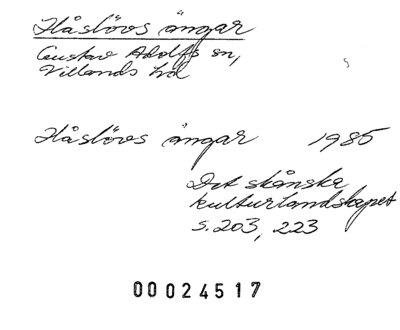 Håslövs ängar
Gustav Adolfs sn,
Villands hd
Håslövs ängar 1985
Det skånska
kulturlandskapet
s. 203, 223
00024517